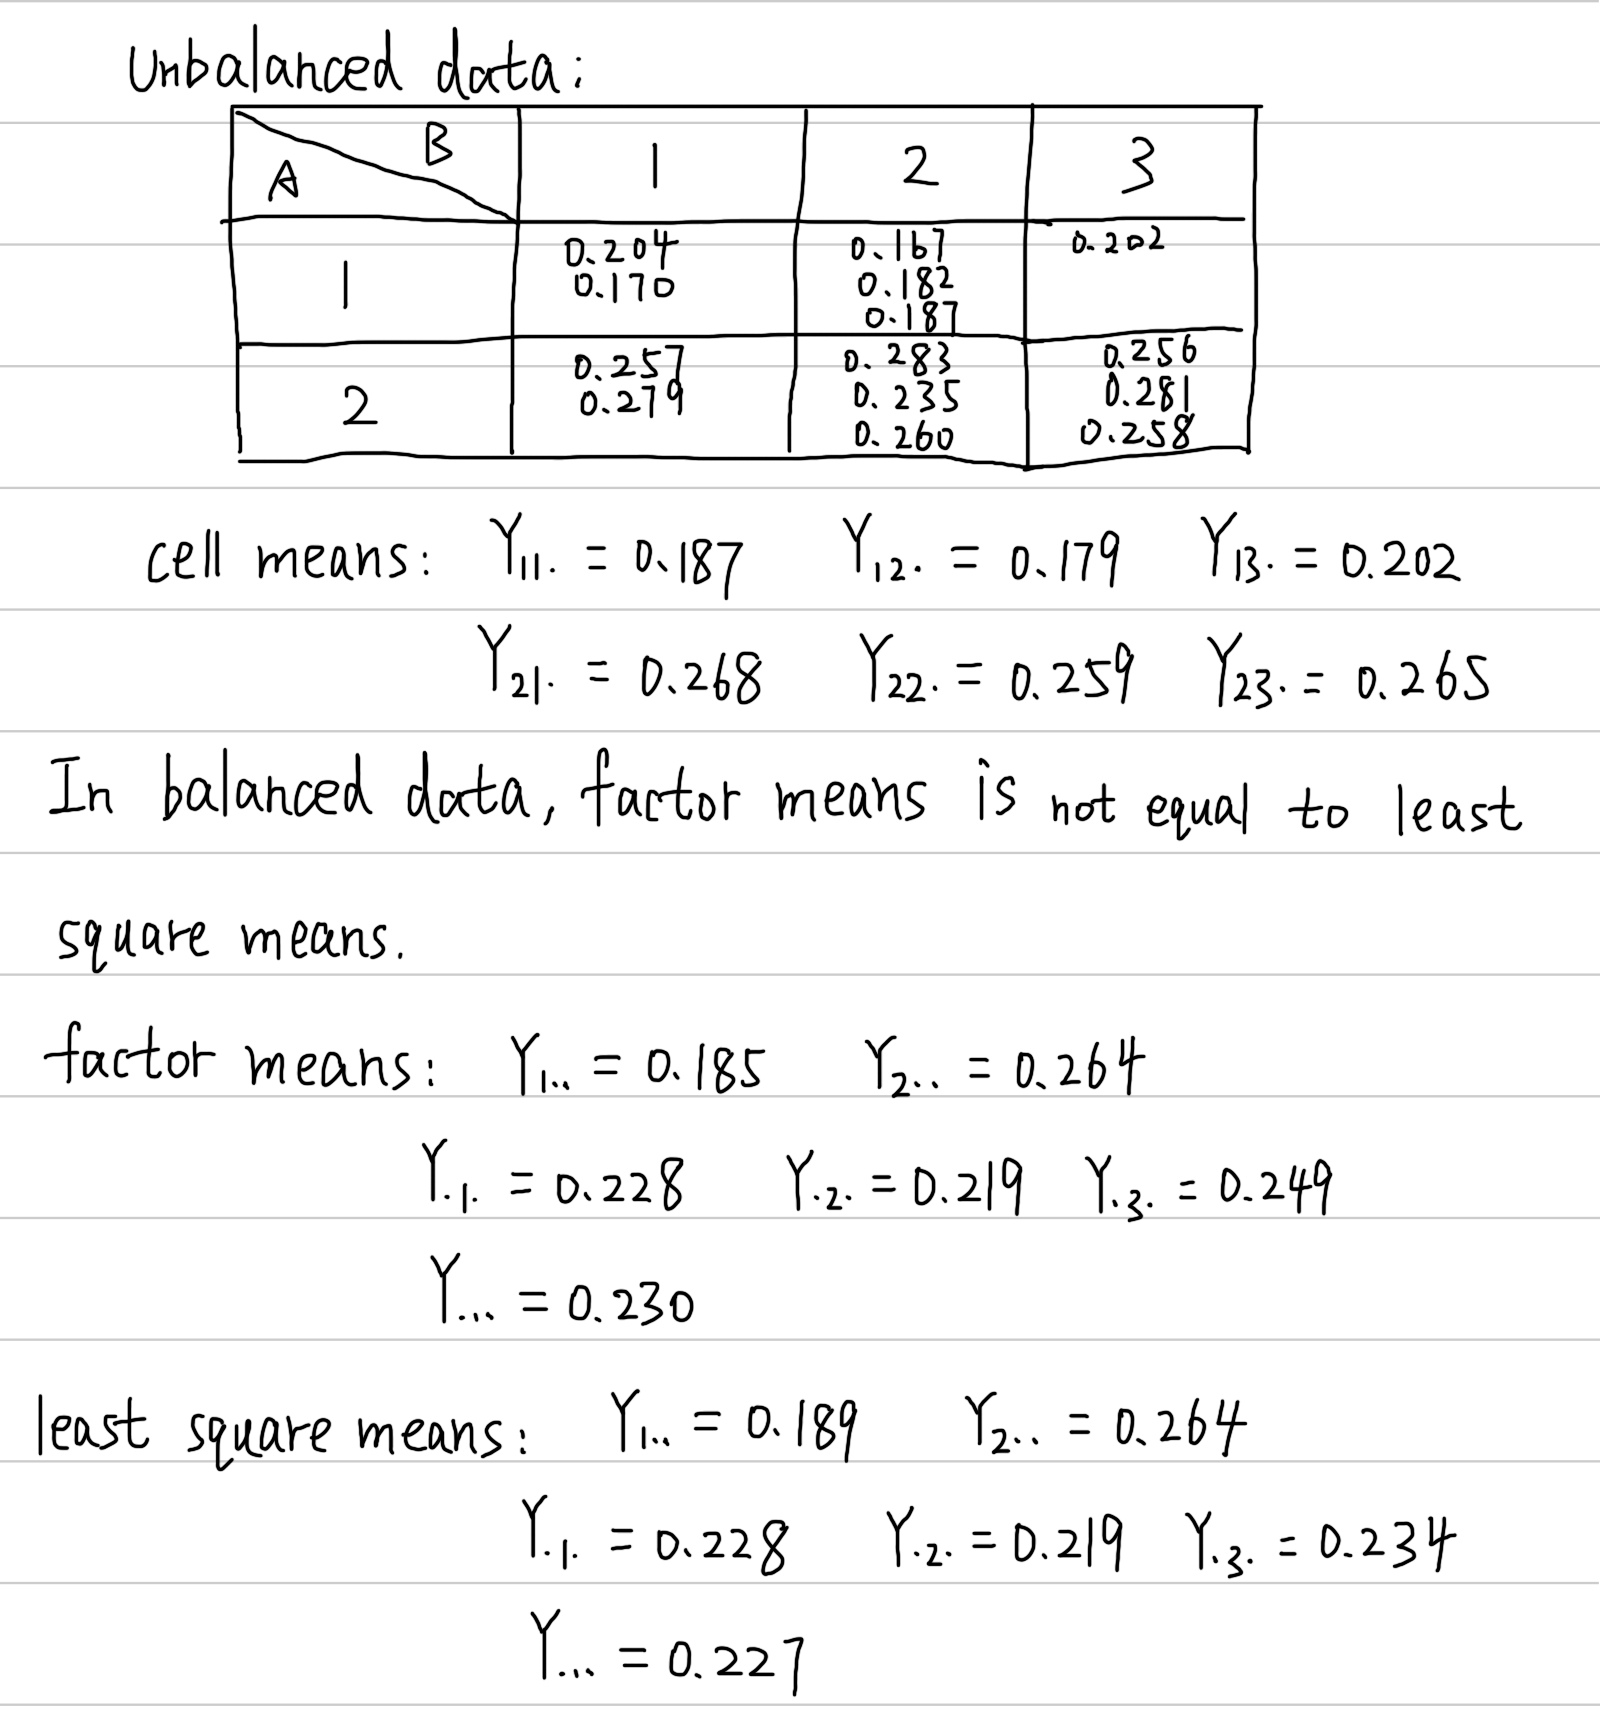 Unbalanced data:
B
A
1 2 3
1
0.204 0.167 0.202
0.170 0.182
0.187
2
0.257 0.283 0.256
0.279 0.235 0.281
0.260 0.258
cell means: Y11. = 0.187 Y12. = 0.179 Y13. = 0.202
Y21. = 0.268 Y22. = 0.259 Y23. = 0.265
In balanced data, factor means is not equal to least
square means.
factor means: Y1.. = 0.185 Y2.. = 0.264
Y.1. = 0.228 Y.2. = 0.219 Y.3. = 0.249
Y... = 0.230
least square means: Y1.. = 0.189 Y2.. = 0.264
Y.1. = 0.228 Y.2. = 0.219 Y.3. = 0.234
Y... = 0.227